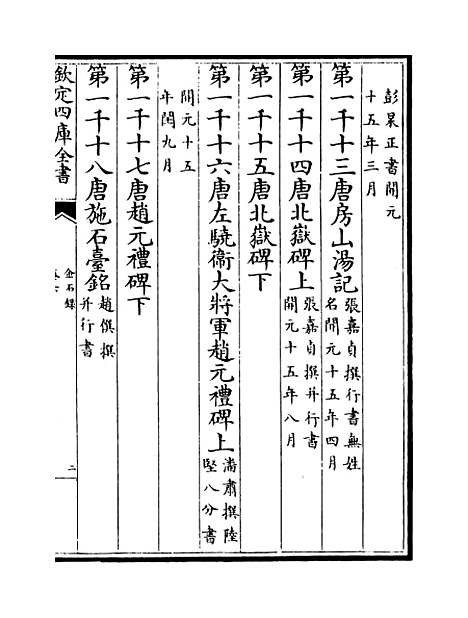 彭杲正書開元
十五年三月
第一千十三唐房山湯記
張嘉貞撰行書無姓
名開元十五年四月
第一千十四唐北嶽碑上
張嘉貞撰并行書
開元十五年八月
第一千十五唐北嶽碑下
第一千十六唐左驍衛大將軍趙元禮碑上
潘肅撰陸
堅八分書
開元十五
年閏九月
第一千十七唐趙元禮碑下
第一千十八唐施石臺銘
趙傑撰
并行書
欽定四庫全書
金石錄
二